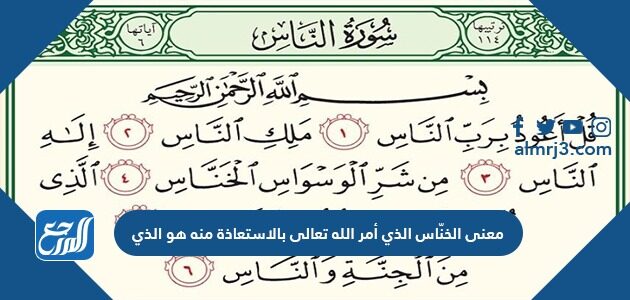 ترتيبها ١١٤
سُورَةُ النَّاسِ
آياتها ٦
بِسْمِ اللَّهِ الرَّحْمَٰنِ الرَّحِيمِ
قُلْ أَعُوذُ بِرَبِّ النَّاسِ ١ مَلِكِ النَّاسِ ٢ إِلَٰهِ
almrj3.com
النَّاسِ ٣ مِن شَرِّ الْوَسْوَاسِ الْخَنَّاسِ ٤ الَّذِي
معنى الخنّاس الذي أمر الله تعالى بالاستعاذة منه هو الذي
المرجع
مِنَ الْجِنَّةِ وَالنَّاسِ ٦